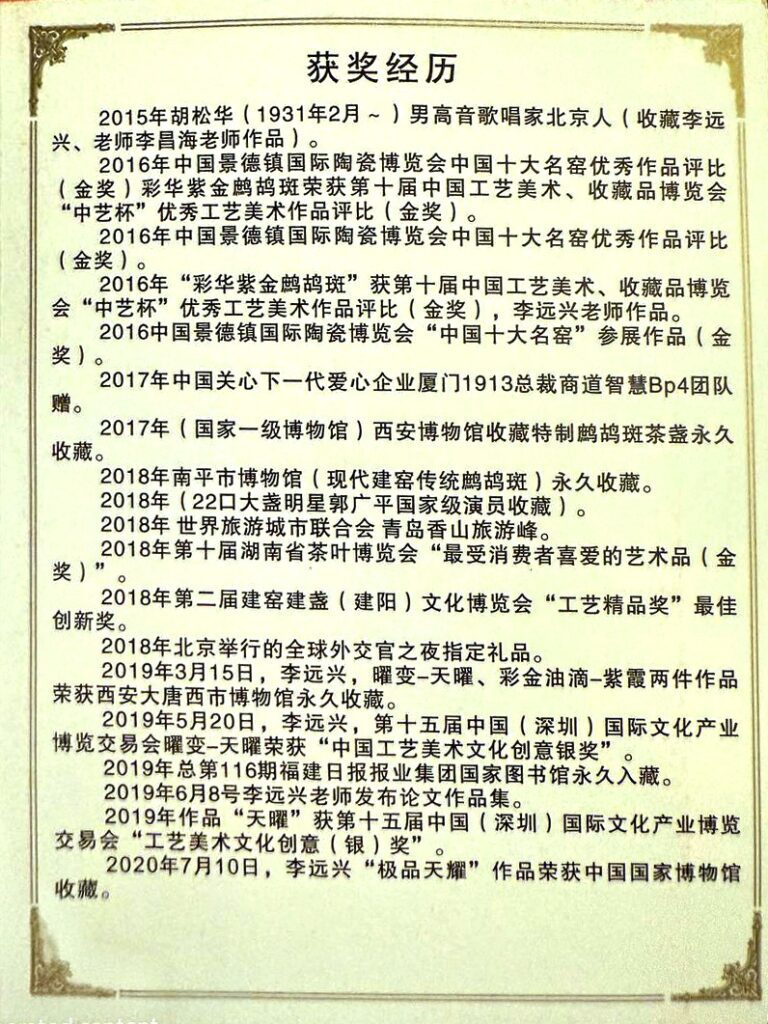 获奖经历
2015年胡松华（1931年2月~）男高音歌唱家北京人（收藏李远
兴、老师李昌海老师作品）。
2016年中国景德镇国际陶瓷博览会中国十大名窑优秀作品评比
（金奖）彩华紫金鹧鸪斑荣获第十届中国工艺美术、收藏品博览会
“中艺杯”优秀工艺美术作品评比（金奖）。
2016年中国景德镇国际陶瓷博览会中国十大名窑优秀作品评比
（金奖）。
2016年“彩华紫金鹧鸪斑”获第十届中国工艺美术、收藏品博览
会“中艺杯”优秀工艺美术作品评比（金奖），李远兴老师作品。
2016中国景德镇国际陶瓷博览会“中国十大名窑”参展作品（金
奖）。
2017年中国关心下一代爱心企业厦门1913总裁商道智慧Bp4团队
赠。
2017年（国家一级博物馆）西安博物馆收藏特制鹧鸪斑茶盏永久
收藏。
2018年南平市博物馆（现代建窑传统鹧鸪斑）永久收藏。
2018年（22口大盏明星郭广平国家级演员收藏）。
2018年 世界旅游城市联合会 青岛香山旅游峰。
2018年第十届湖南省茶叶博览会“最受消费者喜爱的艺术品（金
奖）”。
2018年第二届建窑建盏（建阳）文化博览会“工艺精品奖”最佳
创新奖。
2018年北京举行的全球外交官之夜指定礼品。
2019年3月15日，李远兴，曜变-天曜、彩金油滴-紫霞两件作品
荣获西安大唐西市博物馆永久收藏。
2019年5月20日，李远兴，第十五届中国（深圳）国际文化产业
博览交易会曜变-天曜荣获“中国工艺美术文化创意银奖”。
2019年总第116期福建日报报业集团国家图书馆永久入藏。
2019年6月8号李远兴老师发布论文作品集。
2019年作品“天曜”获第十五届中国（深圳）国际文化产业博览
交易会“工艺美术文化创意（银）奖”。
2020年7月10日，李远兴“极品天耀”作品荣获中国国家博物馆
收藏。